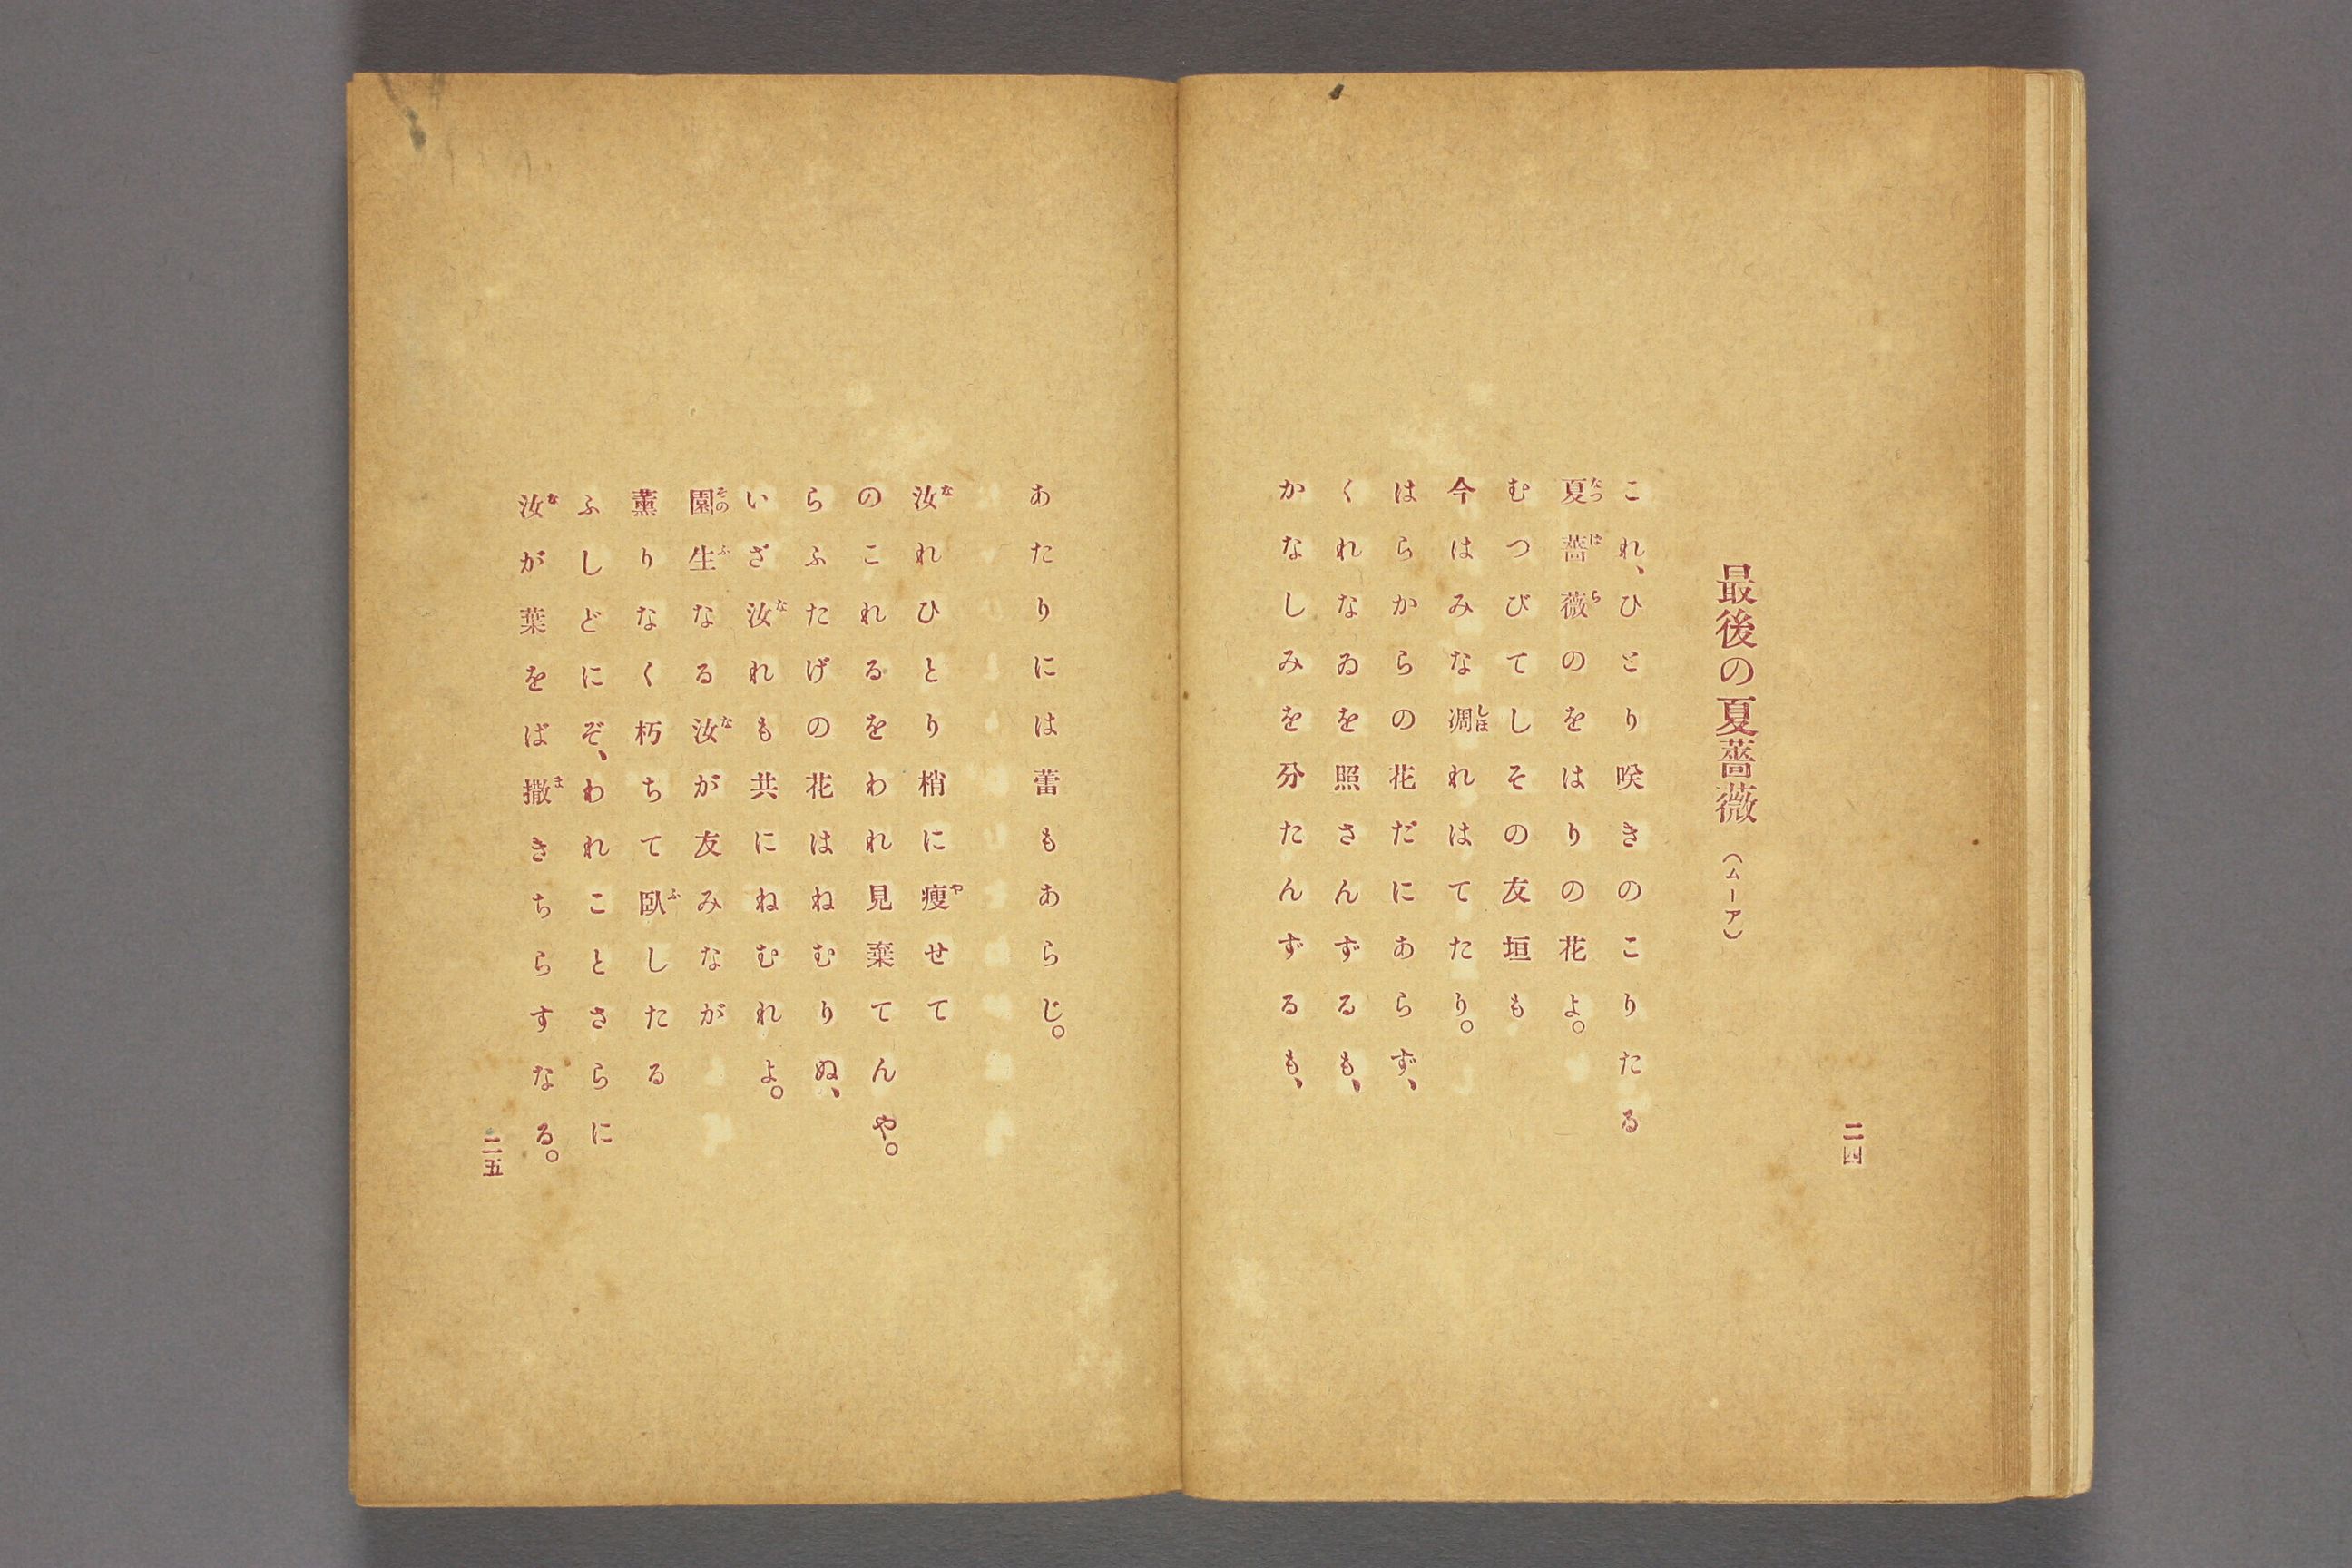 二四
最後の夏薔薇（ムーア）
これ、ひとり咲きのこりたる
夏薔薇のをはりの花よ。
むつびてしその友垣も
今はみな凋れはてたり。
はらからの花だにあらず、
くれなゐを照さんずるも、
かなしみを分たんずるも、
あたりには蕾もあらじ。
汝れひとり梢に瘦せて
のこれるをわれ見棄てんや。
らふたげの花はねむりぬ、
いざ汝れも共にねむれよ。
園生なる汝が友みなが
薫りなく朽ちて臥したる
ふしどにぞ、われことさらに
汝が葉をば撒きちらすなる。
二五